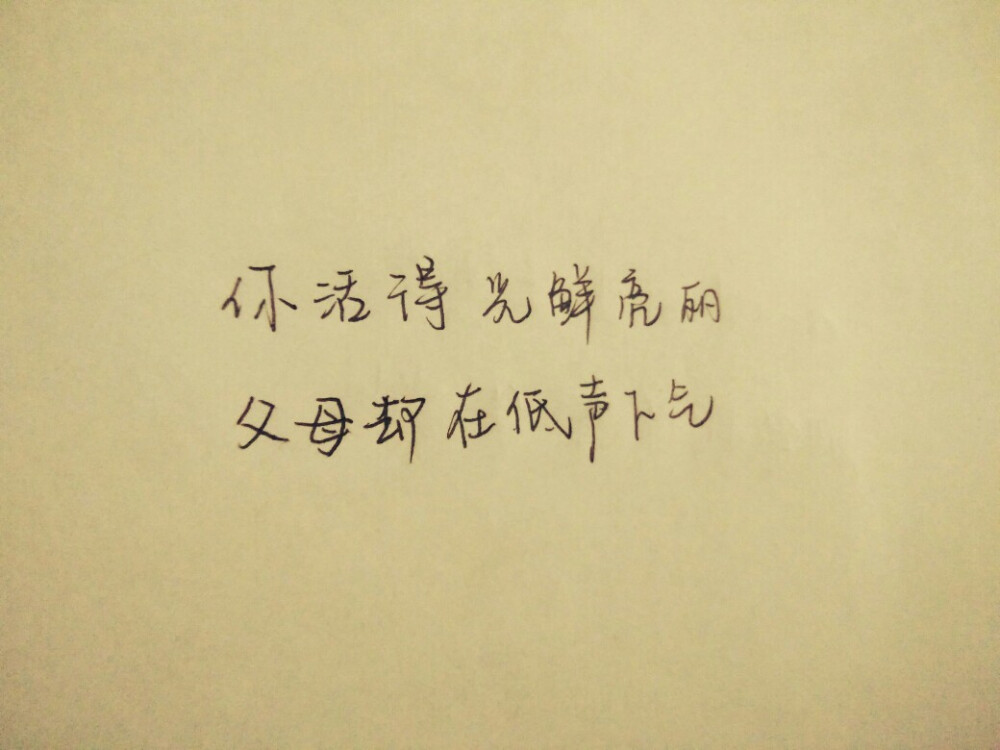 你活得光鲜亮丽
父母却在低声下气